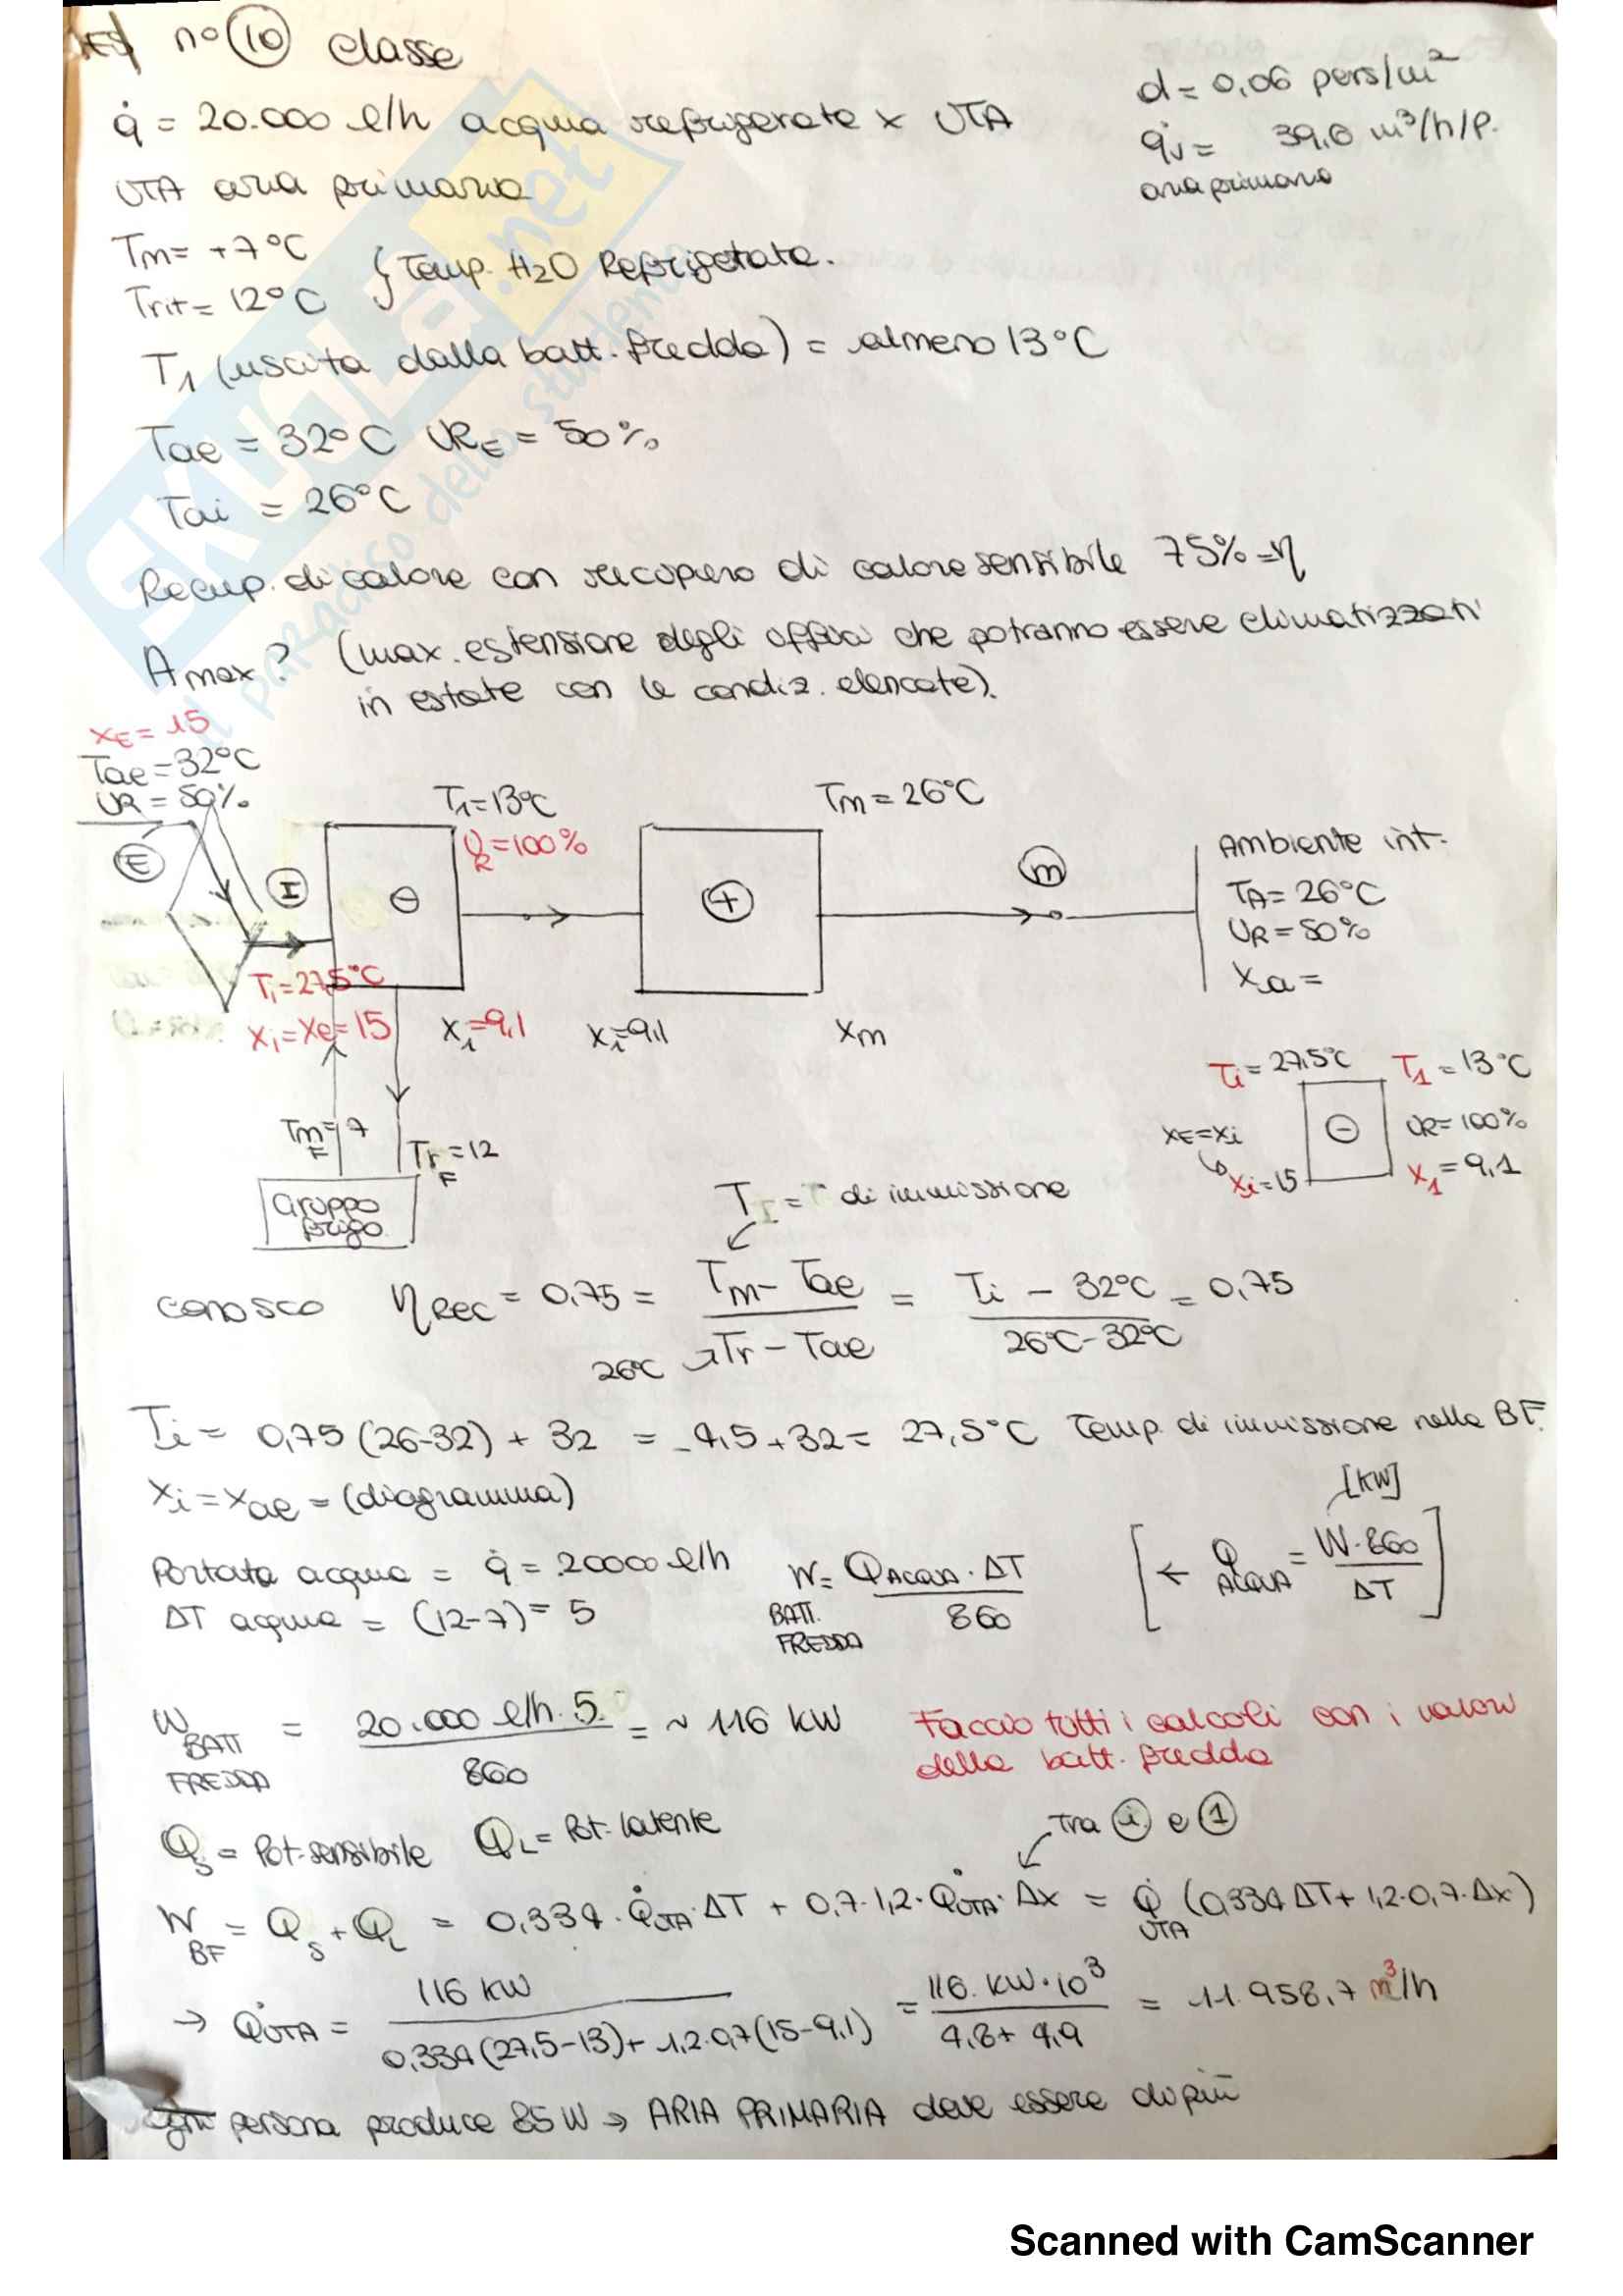 ES n° 10 classe
q̇ = 20.000 l/h acqua refrigerata x UTA
d = 0,06 pers/m²
q̇v = 39,6 m³/h/p.
aria primaria
UTA aria primaria
Tm = +7°C
Trit = 12°C
} Temp. H2O Refrigerata.
T1 (uscita dalla batt. fredda) = almeno 13°C
Tae = 32°C URE = 50%
Tai = 26°C
Recup. di calore con recupero di calore sensibile 75% = η
Amax? (max. estensione degli uffici che potranno essere climatizzati
in estate con le condiz. elencate).
xE = 15
Tae = 32°C
UR = 50%
T1 = 13°C
UR = 100%
Tm = 26°C
E
I
⊖
+
m
Ambiente int.
TA = 26°C
UR = 50%
xa =
Ti = 27,5°C
xi = xe = 15
x1 = 9,1
x1 = 9,1
xm
TmF = 7
TrF = 12
Gruppo frigo
Ti = 27,5°C
T1 = 13°C
xE = xi
xi = 15
⊖
UR = 100%
x1 = 9,1
TI = T di immissione
conosco ηREC = 0,75 = (Tm - Tae)/(Tr - Tae) = (Ti - 32°C)/(26°C - 32°C) = 0,75
26°C
Ti = 0,75 (26-32) + 32 = -4,5 + 32 = 27,5°C Temp. di immissione nella BF.
xi = xae = (diagramma)
Portata acqua = q̇ = 20000 l/h
ΔT acqua = (12-7) = 5
W BATT. FREDDA = QACQUA · ΔT / 860
[← QACQUA = W·860 / ΔT]
[KW]
W BATT FREDDA = 20.000 l/h · 5 / 860 = ~ 116 KW
Faccio tutti i calcoli con i valori
della batt. fredda
QS = Pot. sensibile QL = Pot. latente
Tra i e 1
WBF = QS + QL = 0,334 · Q̇UTA · ΔT + 0,7 · 1,2 · Q̇UTA · Δx = Q̇UTA (0,334 ΔT + 1,2 · 0,7 · Δx)
→ Q̇UTA = 116 KW / (0,334 (27,5-13) + 1,2·0,7 (15-9,1)) = 116. KW · 10³ / (4,8 + 4,9) = 11.958,7 m³/h
ogni persona produce 85 W → ARIA PRIMARIA deve essere di più
SKUOLA.net
il paradiso dello studente
Scanned with CamScanner